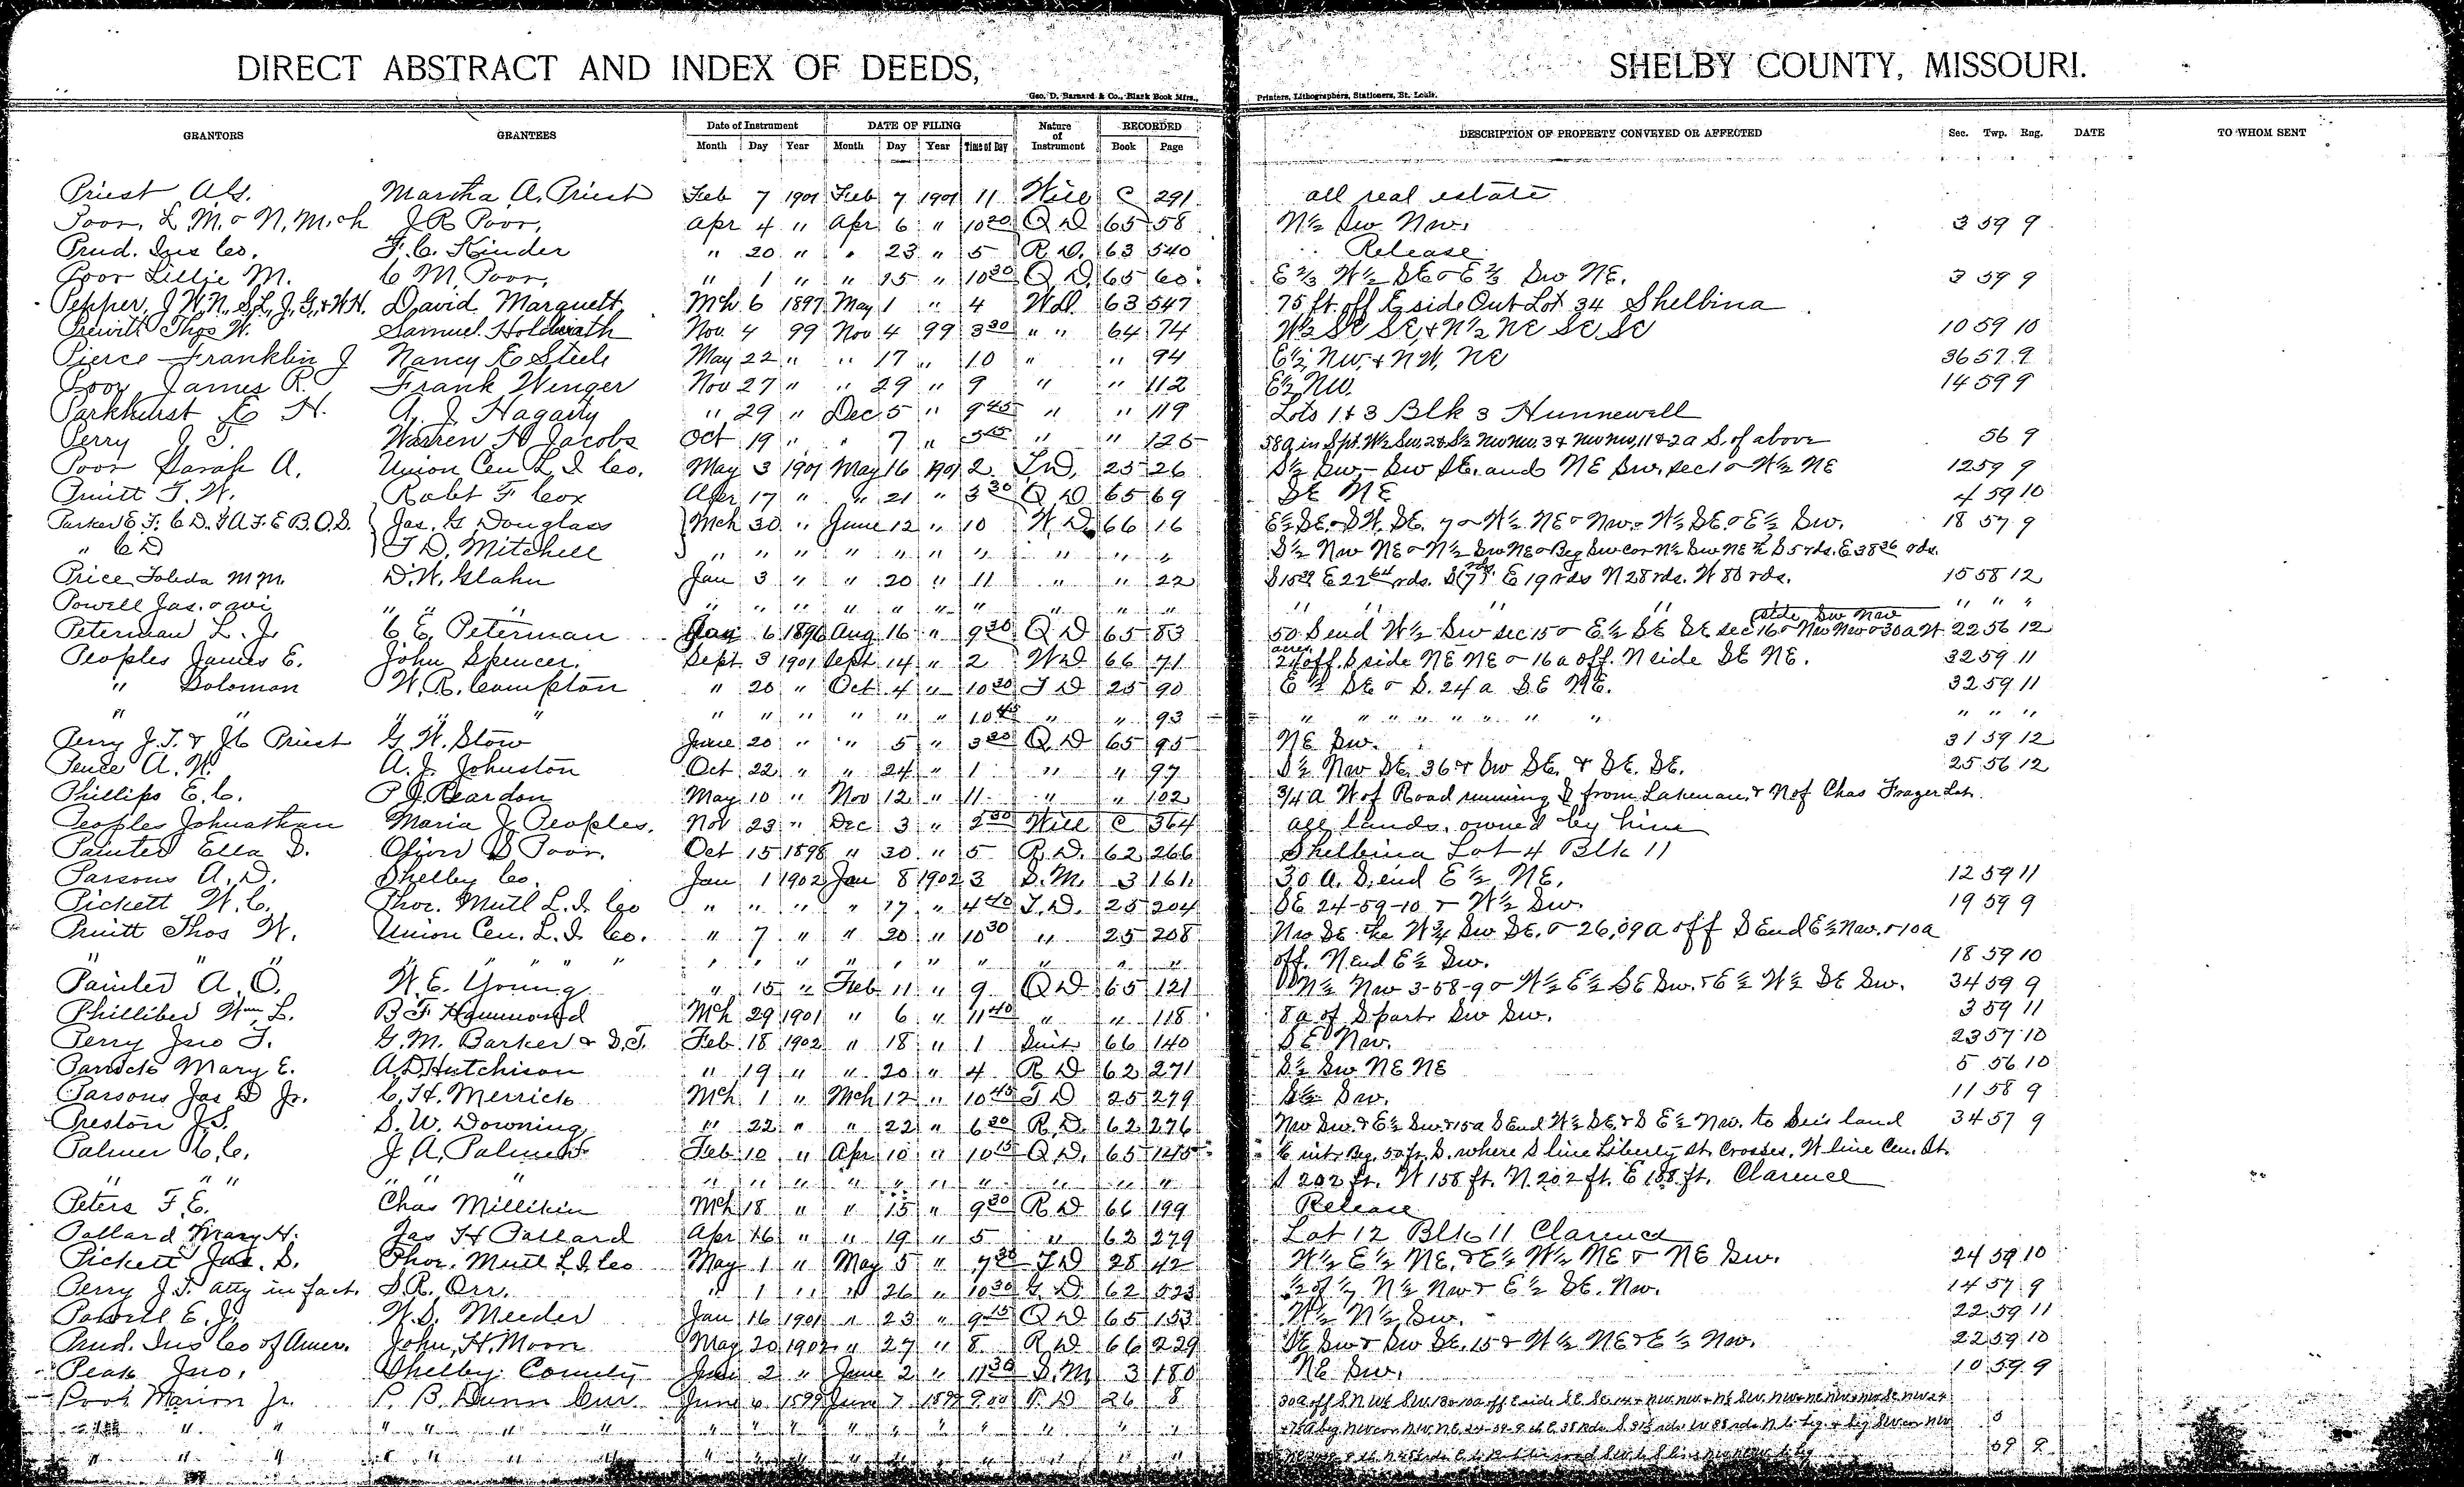 DIRECT ABSTRACT AND INDEX OF DEEDS, SHELBY COUNTY, MISSOURI.
Geo. D. Barnard & Co., Blank Book Mfrs., Printers, Lithographers, Stationers, St. Louis.
GRANTORS GRANTEES Date of Instrument DATE OF FILING Nature of Instrument RECORDED DESCRIPTION OF PROPERTY CONVEYED OR AFFECTED Sec. Twp. Rng. DATE TO WHOM SENT
Month Day Year Month Day Year Time of Day Book Page
Priest A.G. Martha A. Priest Feb 7 1901 Feb 7 1901 11 Will C 291 all real estate
Poor, L. M. & N. M. ch J R Poor, Apr 4 " Apr 6 " 10 20 Q D 65 58 N½ Sw Nw. 3 59 9
Prud. Ins Co. F. C. Kinder " 20 " " 23 " 5 R D. 63 540 Release
Poor Lillie M. C M Poor, " 1 " " 15 " 10 30 Q D 65 60 E⅔ W½ SE & E⅔ Sw NE. 3 59 9
Pepper, J W N., S L, J, G, & W H. David Marquett Mch 6 1897 May 1 " 4 W D. 63 547 75 ft. off E side Out Lot 34 Shelbina
Prewitt Thos W. Samuel Nov 4 99 Nov 4 99 3 30 " " 64 74 W½ SE SE & N½ NE SE SE 10 59 10
Pierce Franklin J Nancy E Steele May 22 " " 17 " 10 " " 94 E½ Nw, & NW, NE 36 57 9
James R. Frank Winger Nov 27 " " 29 " 9 " " 112 E½ NW. 14 59 9
Parkhurst E H. A. J Hagarty " 29 " Dec 5 " 9 45 " " 119 Lots 1 & 3 Blk 3 Hunnewell
Perry J T. Warren H Jacobs Oct 19 " " 7 " " " 125 58a in Spt. W½ Sw, 2 & S½ Nw Nw, 3 & Nw Nw, 11 & 2a S. of above 56 9
Poor Sarah A. Union Cen L I Co. May 3 1901 May 16 1901 2 T D, 25 26 S½ Sw - Sw SE. and NE Sw. sec 1 & W½ NE 12 59 9
Pruitt T. W. Robt F Cox Apr 17 " " 21 " 3 30 Q D 65 69 SE NE 4 59 10
Parker E T. C D. & A F. E B. O. S. Jas. G Douglass Mch 30 " June 12 " 10 W D 66 16 E½ SE. & SW. SE. 7 & W½ NE & Nw. & W½ SE. & E½ Sw. 18 57 9
" C D T D. Mitchell " " " " " " " " " " S½ Nw NE & N½ Sw NE & Beg Sw cor N½ Sw NE S 5 rds. E 38 36 rds.
Price Toleda M M. D. W. Glahn Jan 3 " " 20 " 11 " " 22 E 22 rds. E 19 rds N 28 rds. W 80 rds. 15 58 12
Powell Jas. & wi " " " " " " " " " " " " " " " " " " " "
Peterman L. J. C E. Peterman 6 1896 Aug 16 " 9 30 Q D 65 83 50 S end W½ Sw sec 15 & E½ SE SE sec 16 & Nw Nw & 30a W. side Sw Nw 22 56 12
Peoples James E. John Spencer. Sept 3 1901 Sept 14 " 2 W D 66 71 24 acres off S side NE NE & 16 a off. N side SE NE. 32 59 11
" Solomon W. R. Compton " 20 " Oct 4 " 10 30 T D 25 90 E½ SE & S. 24 a SE NE. 32 59 11
" " " " " " " " " " " 10 45 " " 93 " " " " " " " " " " "
Perry J. T. & J C Priest G. W. Stow June 20 " " 5 " 3 20 Q D 65 95 NE Sw. 31 59 12
Pence A. W. A. J. Johnston Oct 22 " " 24 " 1 " " 97 S½ Nw SE. 36 & Sw SE. & SE. SE. 25 56 12
Phillips E. C. P J. Reardon May 10 " Nov 12 " 11 " " 102 3/4 a W of Road running S from Lakenan, & N of Chas Frazer Lot.
Peoples Johnathan Maria J. Peoples. Nov 23 " Dec 3 " 2 30 Will C 364 all lands, owned by him
Painter Ella D. Poor. Oct 15 1898 " 30 " 5 R. D. 62 266 Shelbina Lot 4 Blk 11
Parsons A. D. Shelby Co. Jan 1 1902 Jan 8 1902 3 S. M. 3 161 30 a. S. end E½ NE. 12 59 11
Pickett W. C. Phoe. Mutl L. I. Co " " " " 17 " 4 40 T. D. 25 204 SE 24-59-10 & W½ Sw. 19 59 9
Pruitt Thos W. Union Cen. L. I. Co. " 7 " " 20 " 10 30 " 25 208 Nw SE. the W¾ Sw SE. & 26,09 a off S End E½ Nw. & 10a
" " " " " " " " " " " " " " " " off. N end E½ Sw. 18 59 10
Painter A. O. W. E. Young " 15 " Feb 11 " 9 Q D 65 121 N½ Nw 3-58-9 & W½ E½ SE Sw. & E½ W½ SE Sw. 34 59 9
Philliber Wm L. B F Hammond Mch 29 1901 " 6 " 11 40 " " 118 8 a of S part Sw Sw. 3 59 11
Perry Jno T. G. M. Barker & D. T. Feb 18 1902 " 18 " 1 Suit 66 140 SE Nw. 23 57 10
Mary E. A. D Hutchison " 19 " " 20 " 4 R D 62 271 S½ Sw NE NE 5 56 10
Parsons Jas D Jr. C. H. Merrick Mch 1 " Mch 12 " 10 45 T D 25 279 S½ Sw. 11 58 9
Preston J. S. S. W. Downing " 22 " " 22 " 6 30 R. D. 62 276 Nw Sw. & E½ Sw. & 15 a S End W½ SE. & S E½ Nw. to land 34 57 9
Palmer C. C. J. A. Palmer Feb 10 " Apr 10 " 10 15 Q D. 65 145 int. Beg. 50 ft. S. where S line Liberty St. Crosses, W line Cen. St.
" " " " " " " " " " " " " " " S 202 ft. W 158 ft. N. 202 ft. E 158 ft. Clarence
Peters F. E. Chas Millikin Mch 18 " " 15 " 9 30 R D 66 199 Release
Pollard Mary H. Jas H Pollard Apr 16 " " 19 " 5 " 62 279 Lot 12 Blk 11 Clarence
Pickett Jas. S. Phoe. Mutl L I. Co May 1 " May 5 " 7 30 T D 28 42 W½ E½ NE. & E½ W½ NE & NE Sw. 24 59 10
Perry J. T. atty in fact. S. R. Orr. " 1 " " 26 " 10 30 G. D. 62 523 N½ Nw & E½ SE. Nw. 14 57 9
Powell E. J. W. S. Meeder Jan 16 1901 " 23 " 9 15 Q D 65 153 W½ N½ Sw. 22 59 11
Prud. Ins Co of Amer. John, H. Moon May 20 1902 " 27 " 8 R D 66 229 SE Sw & Sw SE. 15 & W½ NE & E½ Nw. 22 59 10
Peak Jno. Shelby County June 2 " June 2 " 11 30 S. M 3 180 NE Sw. 10 59 9
Marion Jr. P. B. Dunn Cur. June 6 1899 June 7 1899 9 00 T. D 26 8
" " " " " " " " " " " " " "
" " " " " " " " " " " " " 59 9